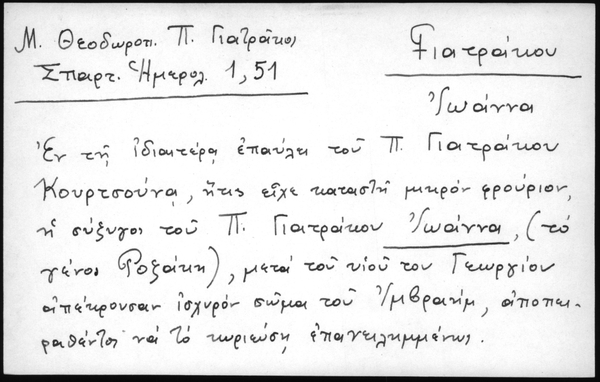 Μ. Θεοδωροπ. Π. Γιατράκος
Σπαρτ. Ἡμερολ. 1, 51
Γιατράκου
Ἰωάννα
Ἐν τῇ ἰδιαιτέρᾳ ἐπαύλει τοῦ Π. Γιατράκου
Κουρτσούνα, ἥτις εἶχε καταστῆ μικρόν φρούριον,
ἡ σύζυγος τοῦ Π. Γιατράκου Ἰωάννα, (τό
γένος Ροζάκη), μετά τοῦ υἱοῦ του Γεωργίου
ἀπέκρουσαν ἰσχυρόν σῶμα τοῦ Ἰμβραήμ, ἀποπει-
ραθέντος νά τό κυριεύσῃ ἐπανειλημμένως.